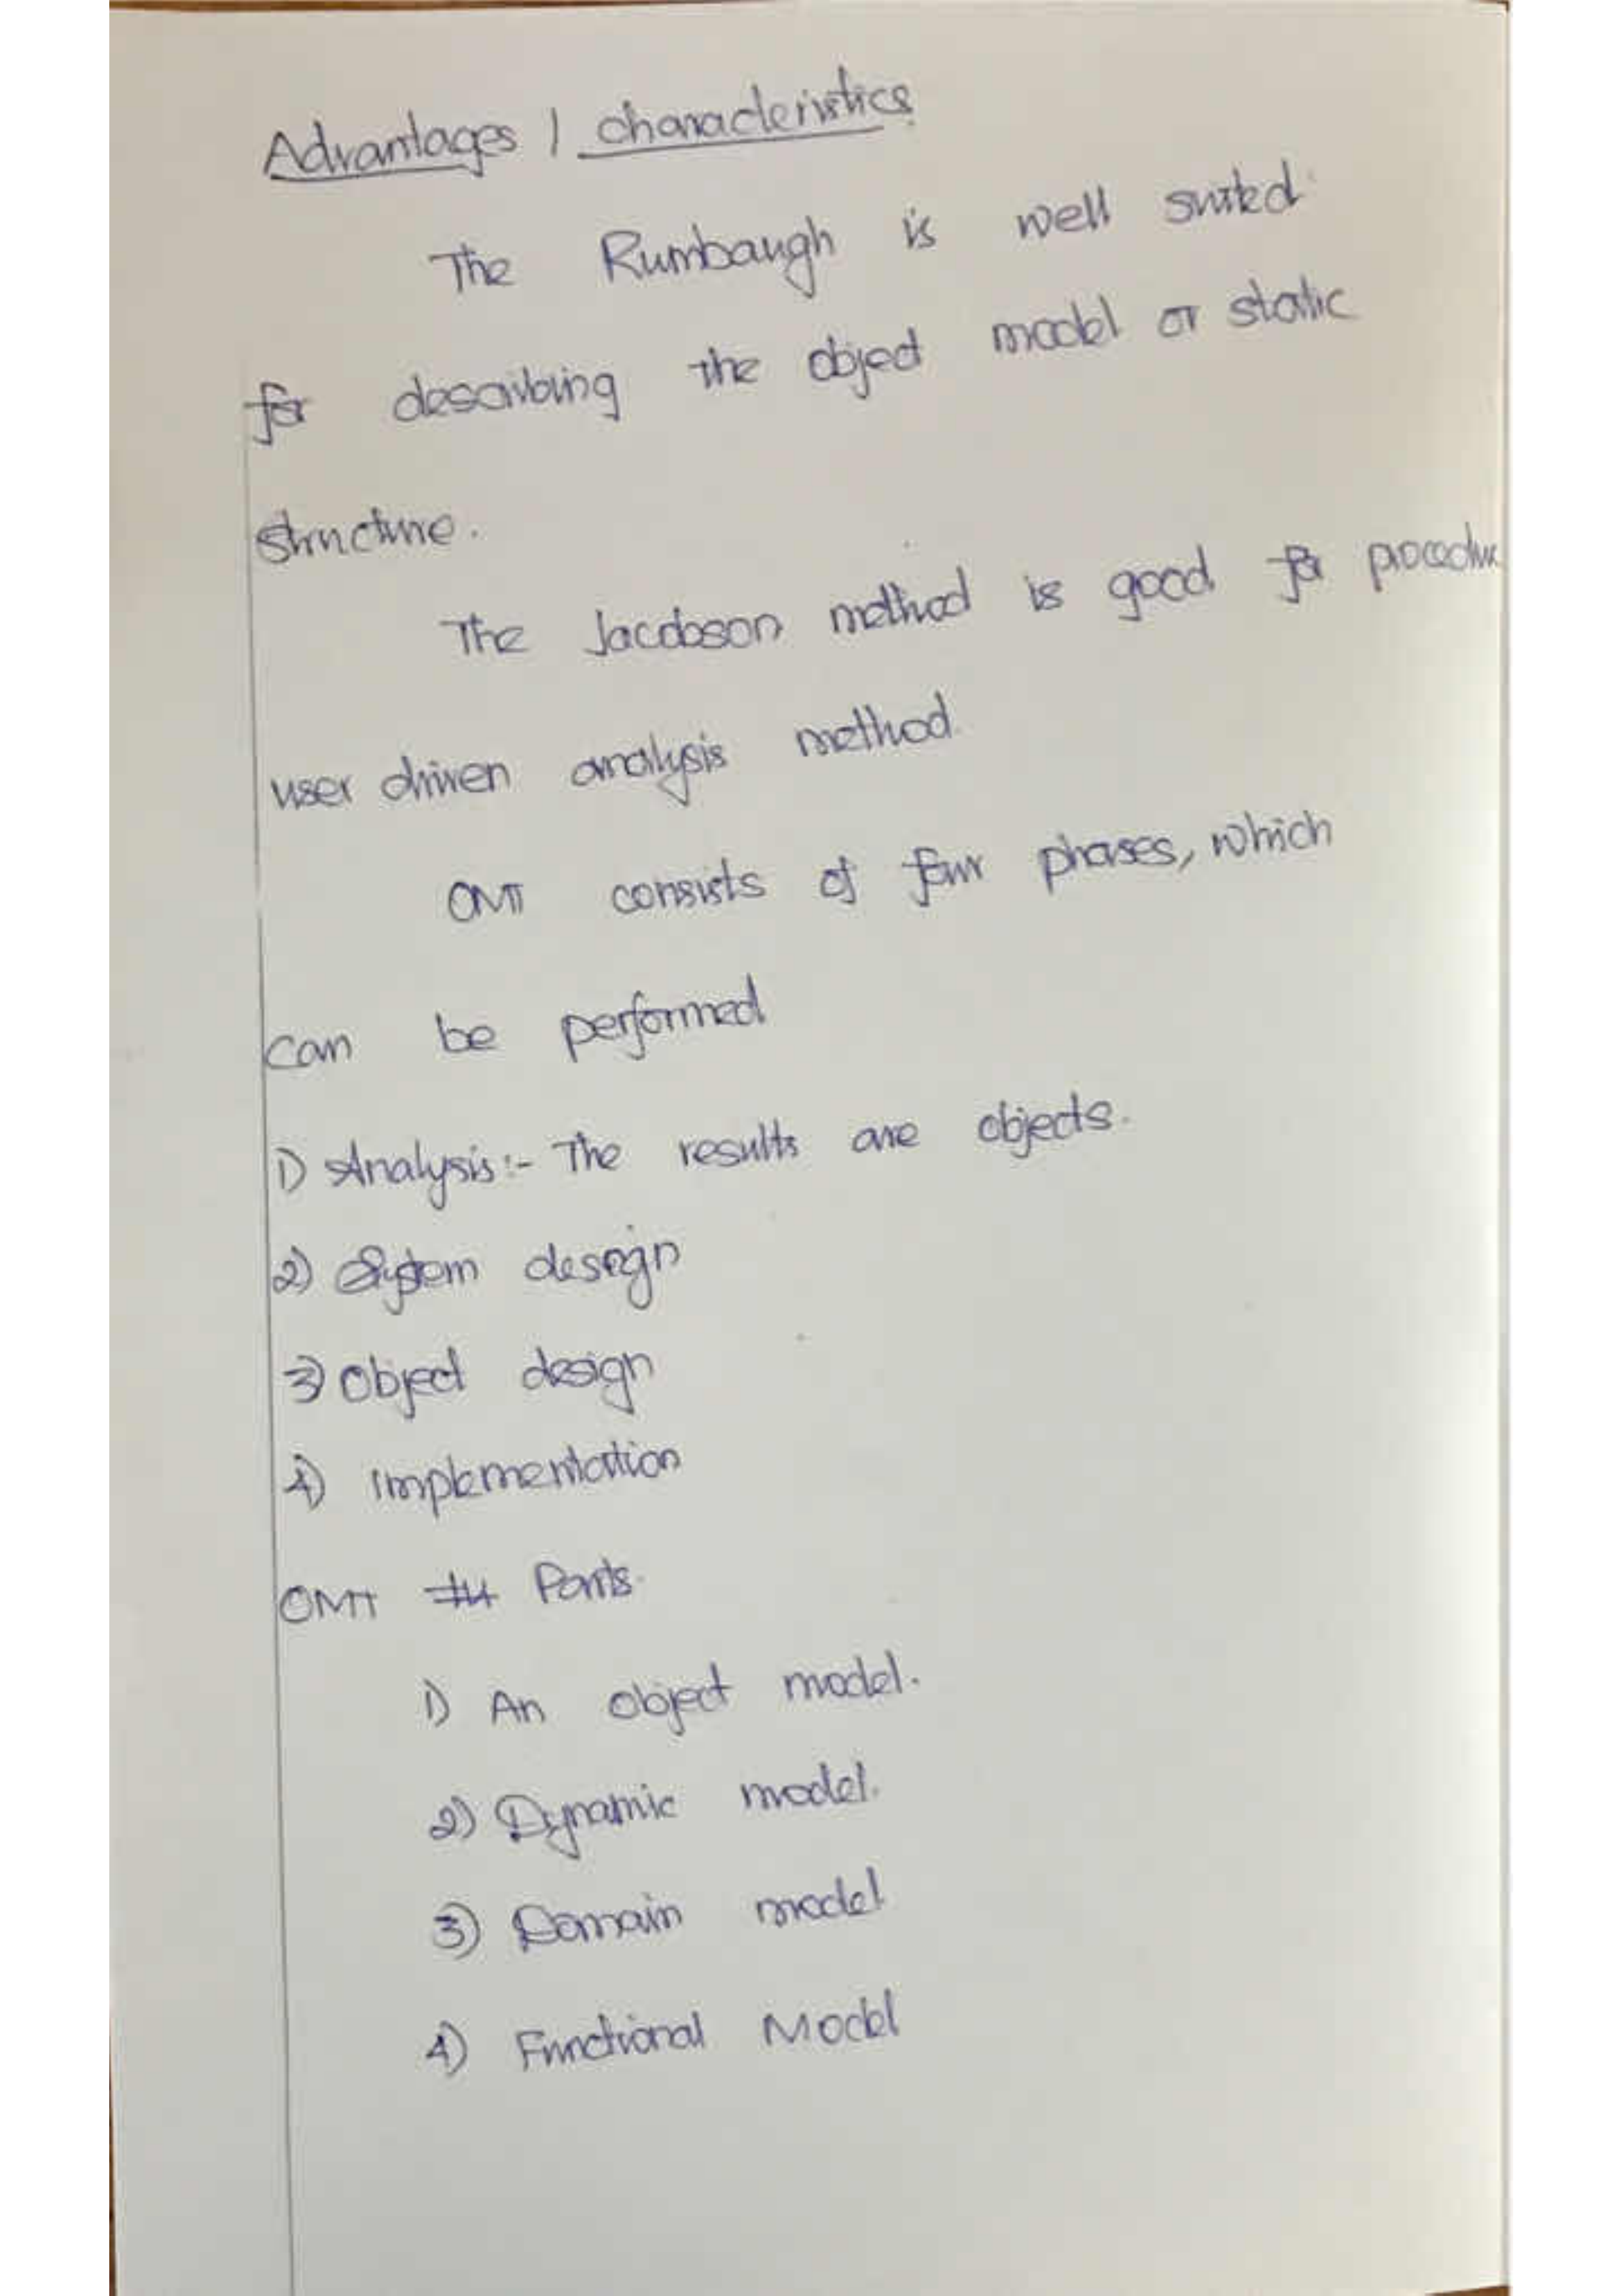 Advantages / characteristics
The Rumbaugh is well suited
for describing the object model or static
structure.
The Jacobson method is good for
user driven analysis method
OMT consists of four phases, which
can be performed
1) Analysis:- The results are objects.
2) System design
3) Object design
4) Implementation
OMT #4 Parts.
1) An object model.
2) Dynamic model.
3) Domain model
4) Functional Model